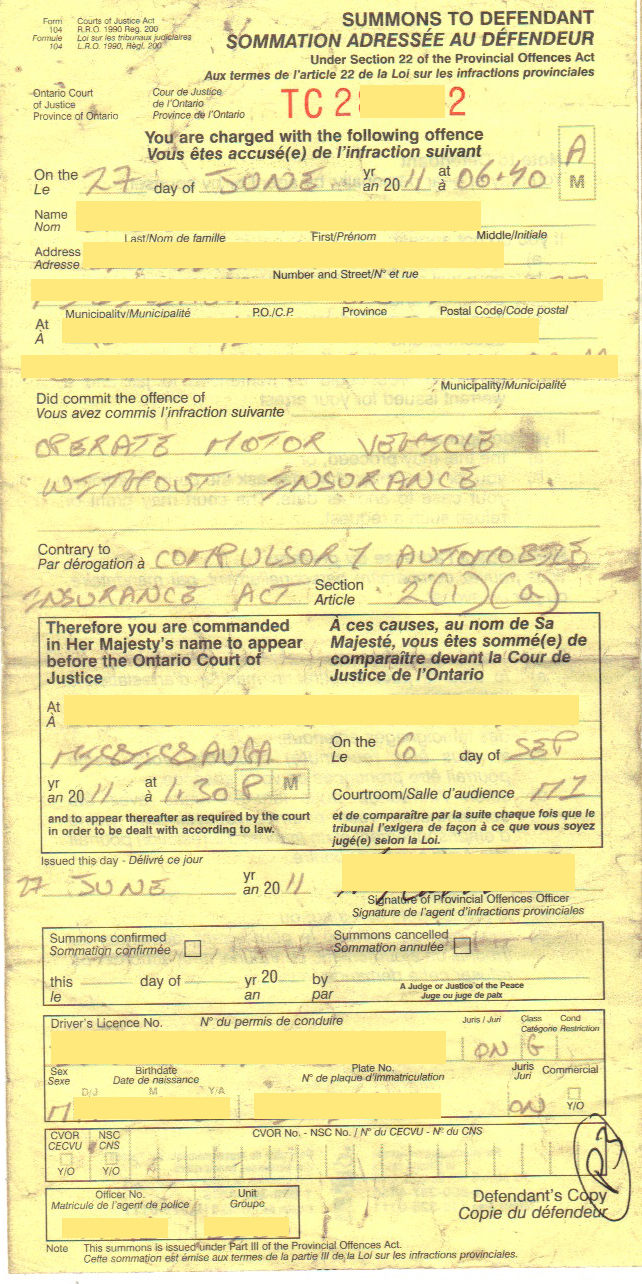 Form Courts of Justice Act
104 R.R.O. 1990 Reg. 200
Formule Loi sur les tribunaux judiciaires
104 L.R.O. 1990, Régl. 200
SUMMONS TO DEFENDANT
SOMMATION ADRESSÉE AU DÉFENDEUR
Under Section 22 of the Provincial Offences Act
Aux termes de l'article 22 de la Loi sur les infractions provinciales
Ontario Court Cour de Justice
of Justice de l'Ontario
Province of Ontario Province de l'Ontario
TC 2 2
You are charged with the following offence
Vous êtes accusé(e) de l'infraction suivant
On the 27 day of JUNE yr 2011 at 06:40 A
Le an à M
Name
Nom
Last/Nom de famille First/Prénom Middle/Initiale
Address
Adresse
Number and Street/N° et rue
Municipality/Municipalité P.O./C.P. Province Postal Code/Code postal
At
À
Municipality/Municipalité
Did commit the offence of
Vous avez commis l'infraction suivante
OPERATE MOTOR VEHICLE
WITHOUT INSURANCE
Contrary to
Par dérogation à COMPULSORY AUTOMOBILE
INSURANCE ACT Section 2(1)(a)
Article
Therefore you are commanded
in Her Majesty's name to appear
before the Ontario Court of
Justice
À ces causes, au nom de Sa
Majesté, vous êtes sommé(e) de
comparaître devant la Cour de
Justice de l'Ontario
At
À
MISSISSAUGA On the 6 day of SEP
Le
yr at
an 2011 à 1:30 P M Courtroom/Salle d'audience M1
and to appear thereafter as required by the court
in order to be dealt with according to law.
et de comparaître par la suite chaque fois que le
tribunal l'exigera de façon à ce que vous soyez
jugé(e) selon la Loi.
Issued this day - Délivré ce jour
27 JUNE yr
an 2011
Signature of Provincial Offences Officer
Signature de l'agent d'infractions provinciales
Summons confirmed Summons cancelled
Sommation confirmée Sommation annulée
this day of yr 20 by
le an par
A Judge or Justice of the Peace
Juge ou juge de paix
Driver's Licence No. N° du permis de conduire Juris / Juri Class Cond
Catégorie Restriction
ON G
Sex Birthdate Plate No. Juris Commercial
Sexe Date de naissance N° de plaque d'immatriculation Juri
D/J M Y/A
M ON Y/O
CVOR NSC CVOR No. - NSC No. / N° du CECVU - N° du CNS
CECVU CNS
Y/O Y/O
R3
Officer No. Unit
Matricule de l'agent de police Groupe
Defendant's Copy
Copie du défendeur
Note This summons is issued under Part III of the Provincial Offences Act.
Cette sommation est émise aux termes de la partie III de la Loi sur les infractions provinciales.